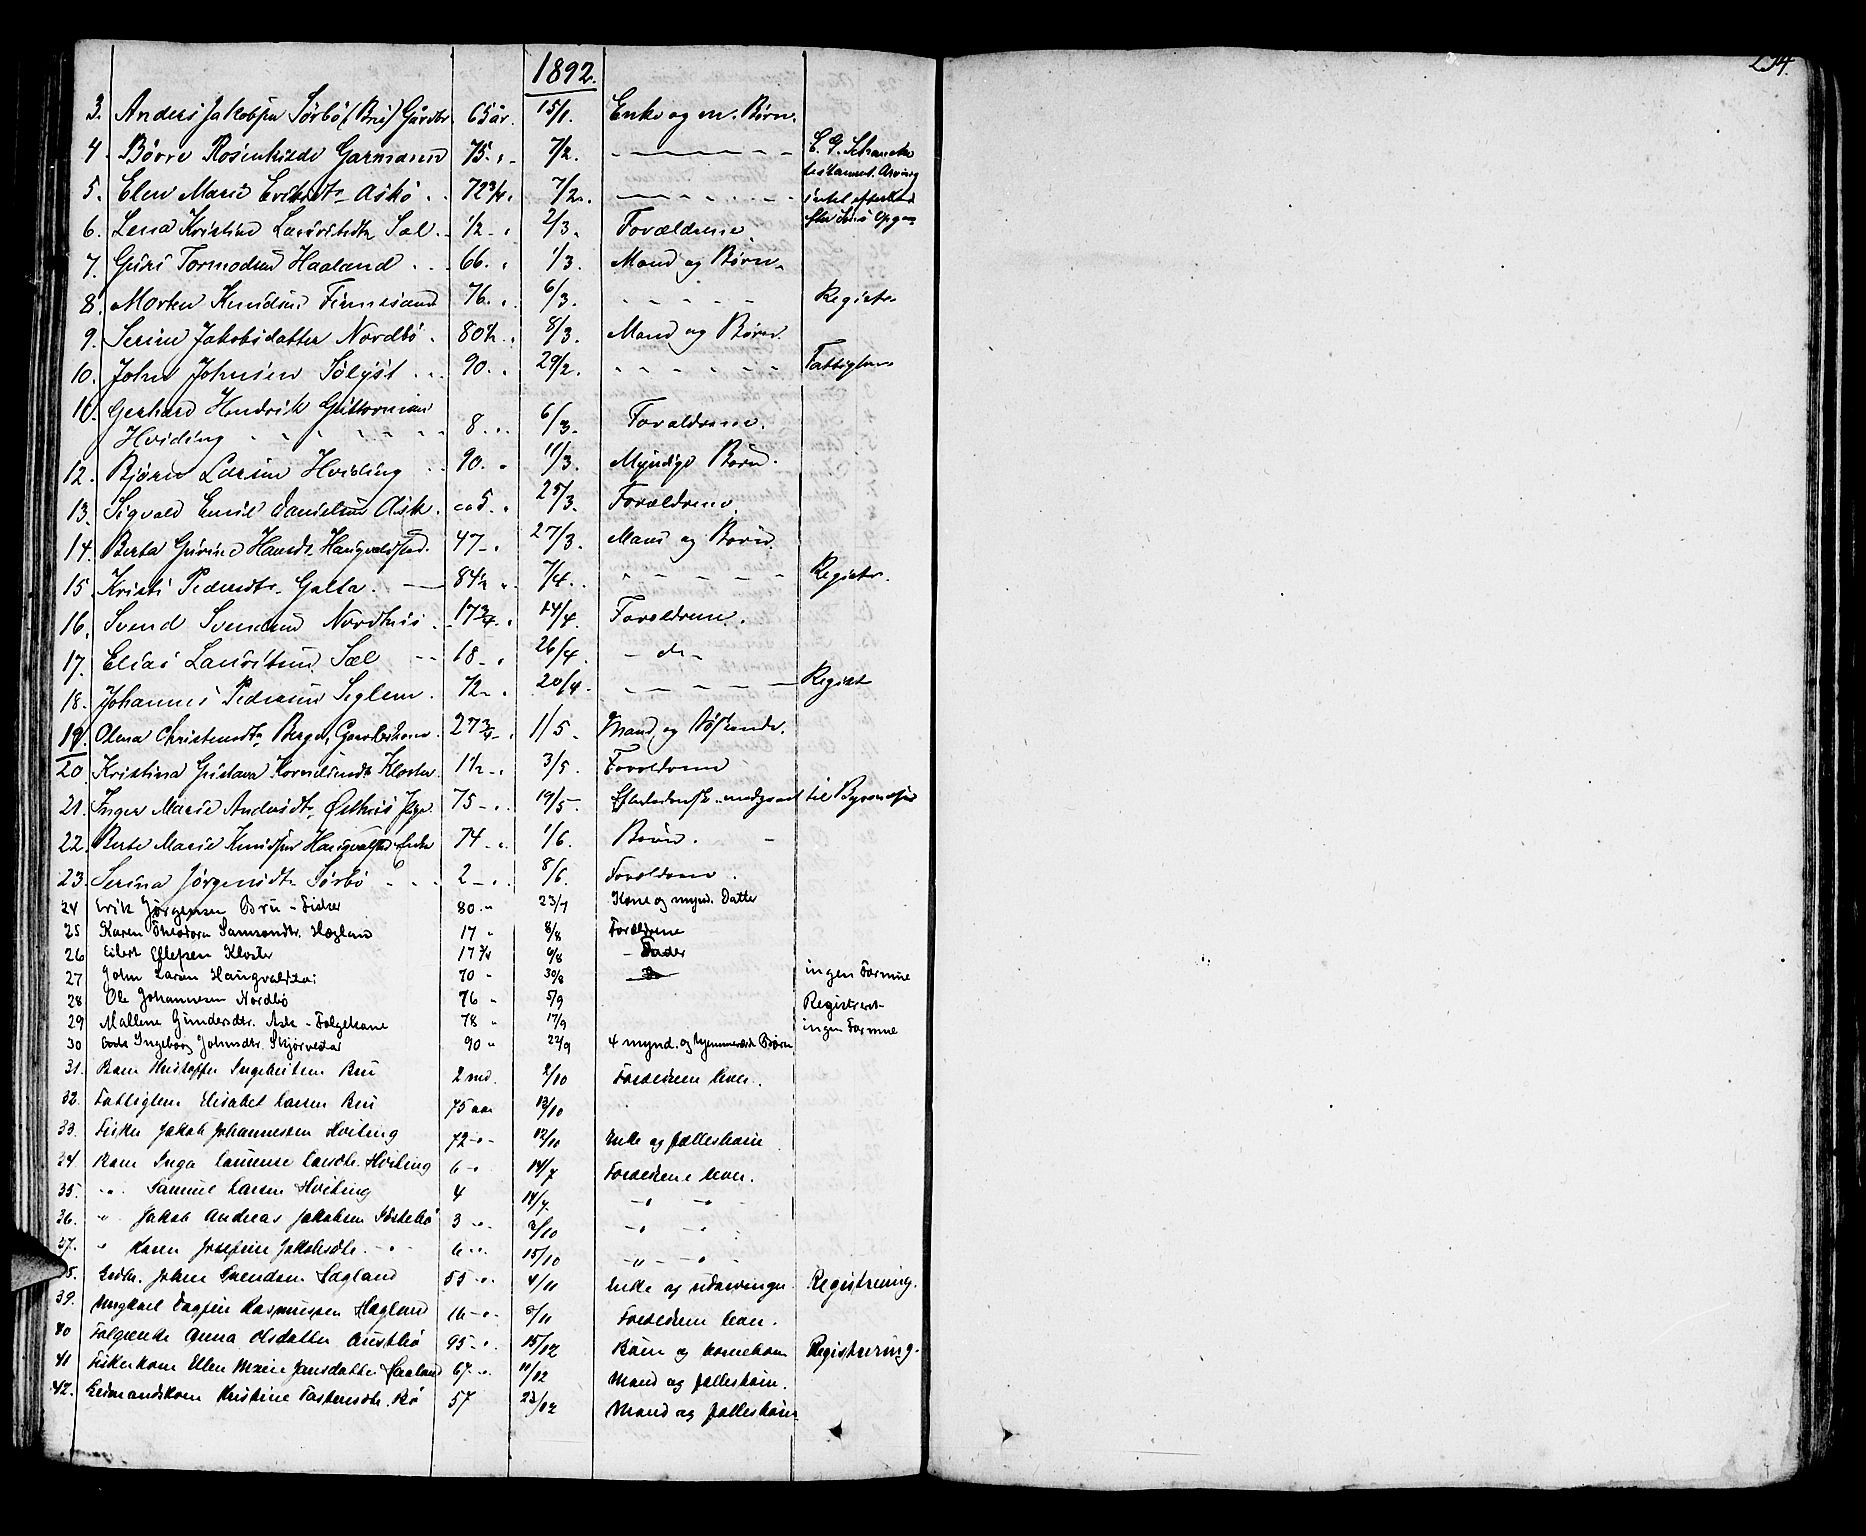 1892.
3. Anders Jakobsen Sørbø (Bru) Gårdbr. 65 år. 15/1. Enke og m. Børn.
4. Børre Rosenkilde Garmann 75. „ 7/2. E. G. Schancke
testament. Arving
5. Elen Marie Eriksdtr Askø 72 3/4. 7/2. intet efterladt
efter Opgave
6. Lena Kristine Lauritsdtr Sæl. 1/2 - „ 2/3. Forældrene
7. Guri Tormodsen Haaland 66. „ 1/3. Mand og Børn.
8. Morten Knudsen Finnesand 76. „ 6/3. Registr
9. Serine Jakobsdatter Nordbø. 80 1/2. 8/3. Mand og Børn.
10. John Johnsen Sølyst 90. „ 29/2. Fattiglem
11. Gerhard Hendrik Guttormsen
Hviding 8. „ 6/3. Forældrene.
12. Bjørn Larsen Hviding 90. „ 11/3. Myndige Børn.
13. Sigvald Emil Danielsen Ask. ca 5. „ 25/3. Forældrene.
14. Berta Gurine Hansdtr Haugvaldstad. 47 - „ 27/3. Mand og Børn.
15. Kristi Pedersdtr Galta. 84 1/2 „ 7/4. Registr.
16. Svend Svendsen Nordhus. 17 3/4 „ 14/4. Forældrene.
17. Elias Lauritsen Sæl 18 - „ 26/4. - do -
18. Johannes Pedersen Seglem. 72 - „ 20/4. Registr
19. Olena Christensdtr Berge, Gaardbrkone. 27 3/4 - „ 1/5. Mand og Søskende.
20. Kristina Gustava Korneliusdtr Kloster. 1 1/2 - „ 3/5. Forældrene
21. Inger Marie Andersdtr. Østhus Pige. 75 - „ 19/5. til
22. Berte Marie Knudsen Haugvalstad Enke 74 - „ 1/6. Børn.
23. Serina Jørgensdtr Sørbø 2 - „ 8/6. Forældrene.
24 Erik Jørgensen Bru - Fisker 80 „ 23/7 Kone og mynd. Datter
25 Karen Theodora Samsondtr. Hægland 17 „ 8/8 Forældrene
26 Eilert Ellefsen Kloster 17 3/4 6/8 - Fader
27 John Larsen Haugvaldstad 70 „ 30/8 ingen Formue
28 Ole Johannesen Nordbø 76 „ 5/9 Registreret
29 Mallene Gundersdtr. Ask - Folgekone 78 „ 17/9 ingen Formue
30 Ingeborg Johnsdtr. Skjørvestad 90 „ 22/9 4 mynd. og hjemmeværde Børn
31. Barn Kristoffer Ingebretsen Bru 2 md. 2/10 Forældrene lever.
32. Fattiglem Elisabet Larsen Bru 75 aar 13/10
33. Fisker Jakob Johannessen Hviting 72 - „ 12/10 Enke og fællesbørn
34. Barn Inga Laurense Larsdtr. Hviting 6 - „ 14/7 Forældrene lever.
35. - „ Samuel Larsen Hviting 4 14/7 - „ - „
36. „ Jakob Andreas Jakobsen Sørbø 3 - „ 2/10 - „ - „
37. „ Karen Josefine Jakobsdtr. - „ 6 - „ 15/10 - „ - „
38. Grdbr. Johan Svendsen Hægland 55 - „ 4/11 Enke og udarvinger Registrering.
39. Ungkarl Dagfin Rasmussen Hægland 16 - „ 8/11 Forældrene lever.
40 Folgeenke Anna Olsdatter Austbø 95 - „ 15/12 Børn og børnebørn Registrering.
41 Fiskerkone Ellen Marie Jansdatter Haaland 67 - „ 11/12 Mand og fællesbørn.
42. Grdmandskone Kristine Torstensdtr. Bø 57 23/12 Mand og fællesbørn